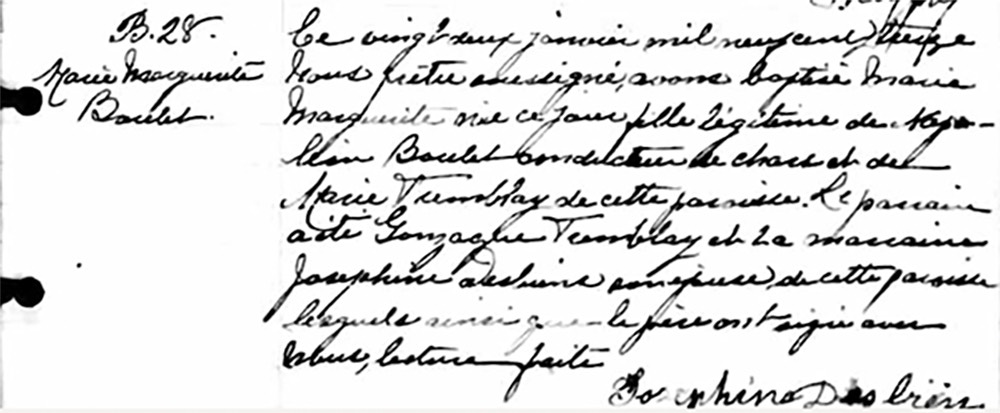 B. 28.
Marie Marguerite
Boulet.
Ce vingt deux janvier mil neuf cent treize
Nous prêtre soussigné, avons baptisé Marie
Marguerite née ce jour fille légitime de Napo-
léon Boulet conducteur de chars et de
Marie Tremblay de cette paroisse. Le parrain
a été Gonzague Tremblay et la marraine
Josephine Desbiens son épouse, de cette paroisse
lesquels ainsi que le père ont signé avec
nous, lecture faite
Josephine Desbien